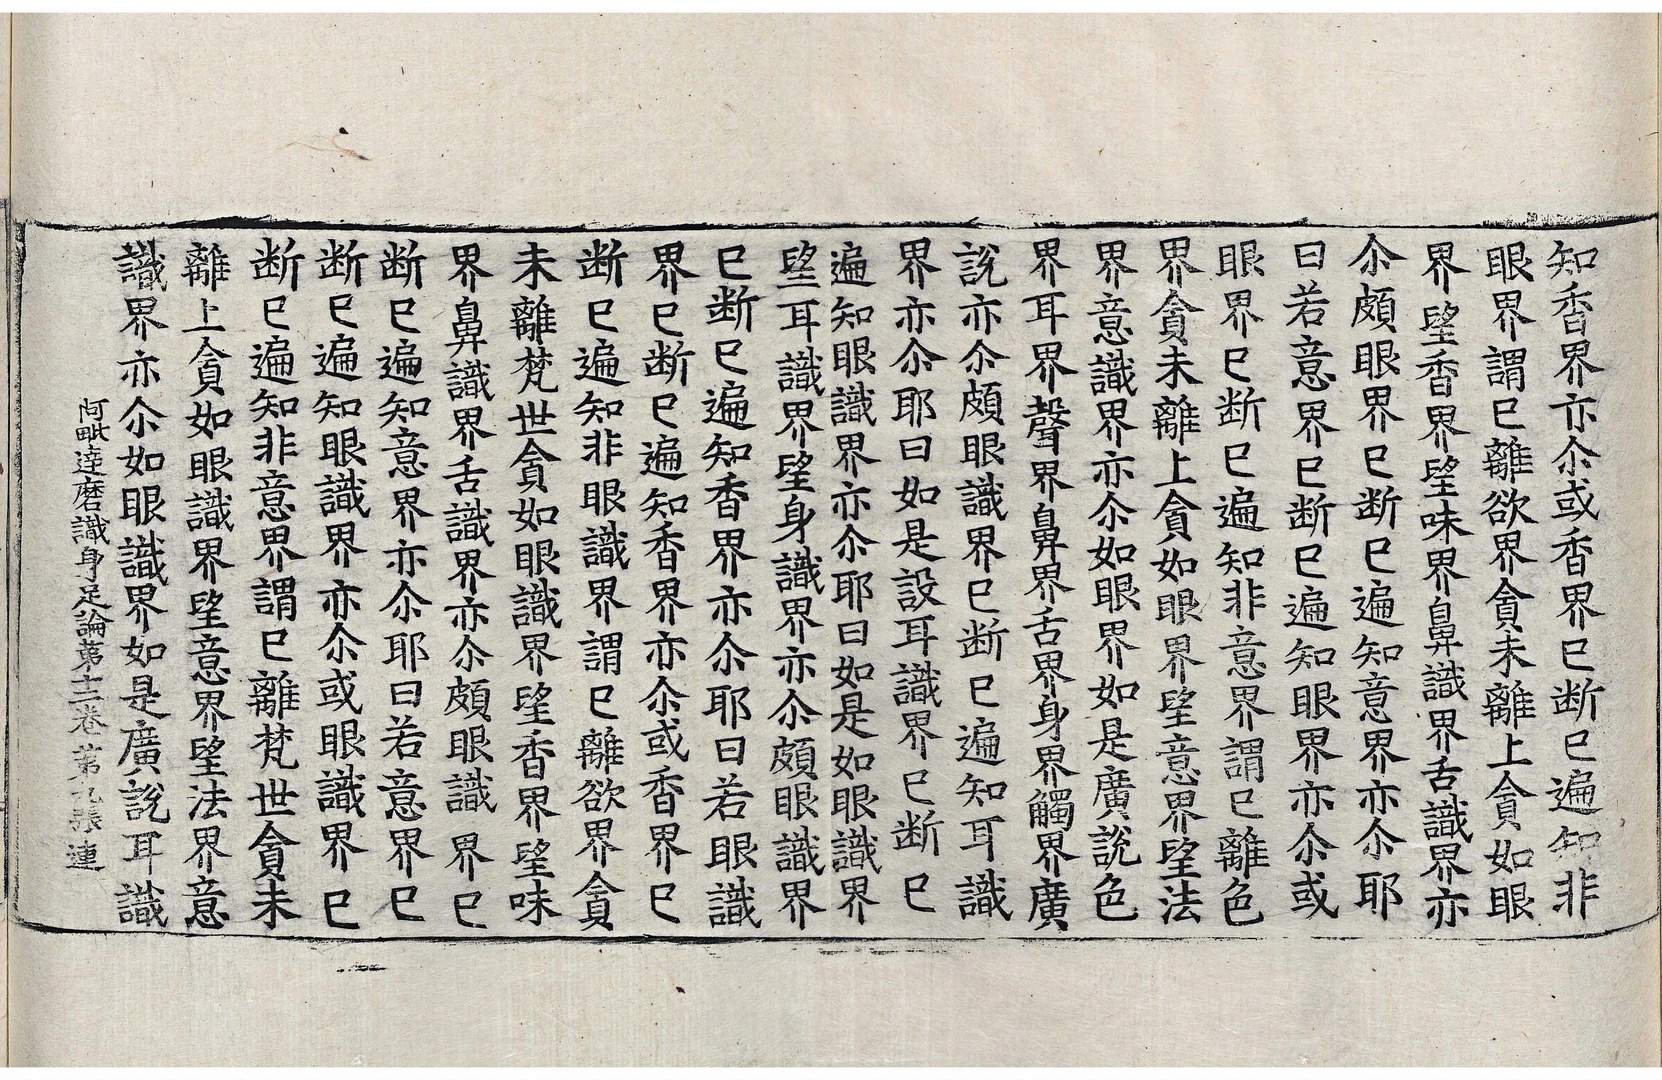 知香界亦尒或香界已断已遍知非
眼界謂已離欲界貪未離上貪如眼
界望香界望味界鼻識界舌識界亦
尒頗眼界已断已遍知意界亦尒耶
曰若意界已断已遍知眼界亦尒或
眼界已断已遍知非意界謂已離色
界貪未離上貪如眼界望意界望法
界意識界亦尒如眼界如是廣說色
界耳界聲界鼻界舌界身界觸界廣
說亦尒頗眼識界已断已遍知耳識
界亦尒耶曰如是設耳識界已断已
遍知眼識界亦尒耶曰如是如眼識界
望耳識界望身識界亦尒頗眼識界
已断已遍知香界亦尒耶曰若眼識
界已断已遍知香界亦尒或香界已
断已遍知非眼識界謂已離欲界貪
未離梵世貪如眼識界望香界望味
界鼻識界舌識界亦尒頗眼識界已
断已遍知意界亦尒耶曰若意界已
断已遍知眼識界亦尒或眼識界已
断已遍知非意界謂已離梵世貪未
離上貪如眼識界望意界望法界意
識界亦尒如眼識界如是廣說耳識
阿毗達磨識身足論第十二卷 第九張 連